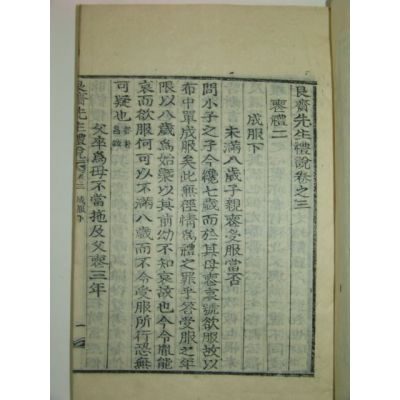 艮齋先生禮說卷之三
喪禮二
成服下
未滿八歲子親喪受服當否
問小子之子今纔七歲而於其母喪哀號欲服故以
布巾單成服矣此無徑情爲禮之罪乎答受服之年
限以八歲爲始槩以其前幼不知哀故也今令胤能
哀而欲服何可以不滿八歲而不令受服所行恐無
可疑也
父卒爲母不當拖及父喪三年
艮齋先生禮說 卷三 成服下 一